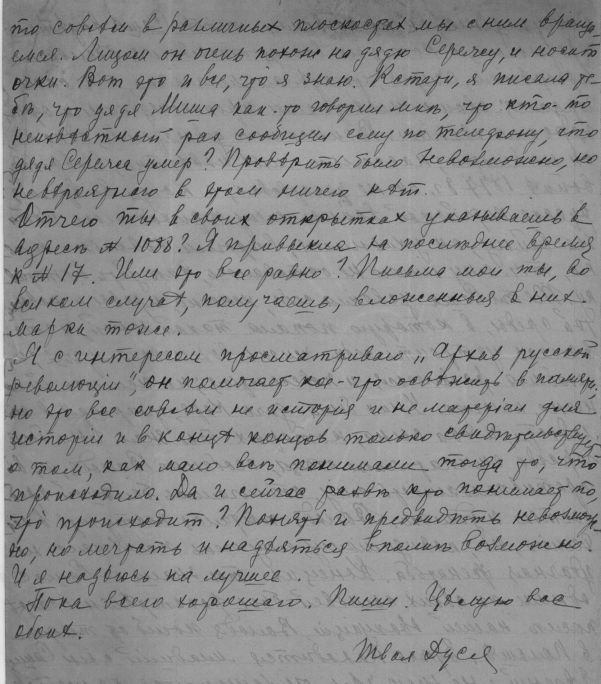 то совсѣм в различных плоскостях мы с ним враща-
емся. Лицом он очень похож на дядю Сережу, и носит
очки. Вот это и все, что я знаю. Кстати, я писала те-
бѣ, что дядя Миша как-то говорил мнѣ, что кто-то
неизвѣстный раз сообщил ему по телефону, что
дядя Сережа умер? Провѣрить было невозможно, но
невѣроятного в этом ничего нѣт.
Отчего ты в своих открытках указываешь в
адресѣ № 1088? Я привыкла за послѣднее время
к № 17. Или это все равно? Письма мои ты, во
всяком случаѣ, получаешь, вложенныя в них
марки тоже.
Я с интересом просматриваю „Архив русской
революціи", он помогает кое-что освѣжить в памяти,
но это все совсѣм не исторія и не матеріал для
исторіи и в концѣ концов только свидѣтельствует
о том, как мало всѣ понимали тогда то, что
происходило. Да и сейчас развѣ кто понимает то,
что происходит? Понять и предвидѣть невозмож-
но, но мечтать и надѣяться вполнѣ возможно.
И я надѣюсь на лучшее.
Пока всего хорошаго. Пиши. Цѣлую вас
обоих.
Твоя Дуся